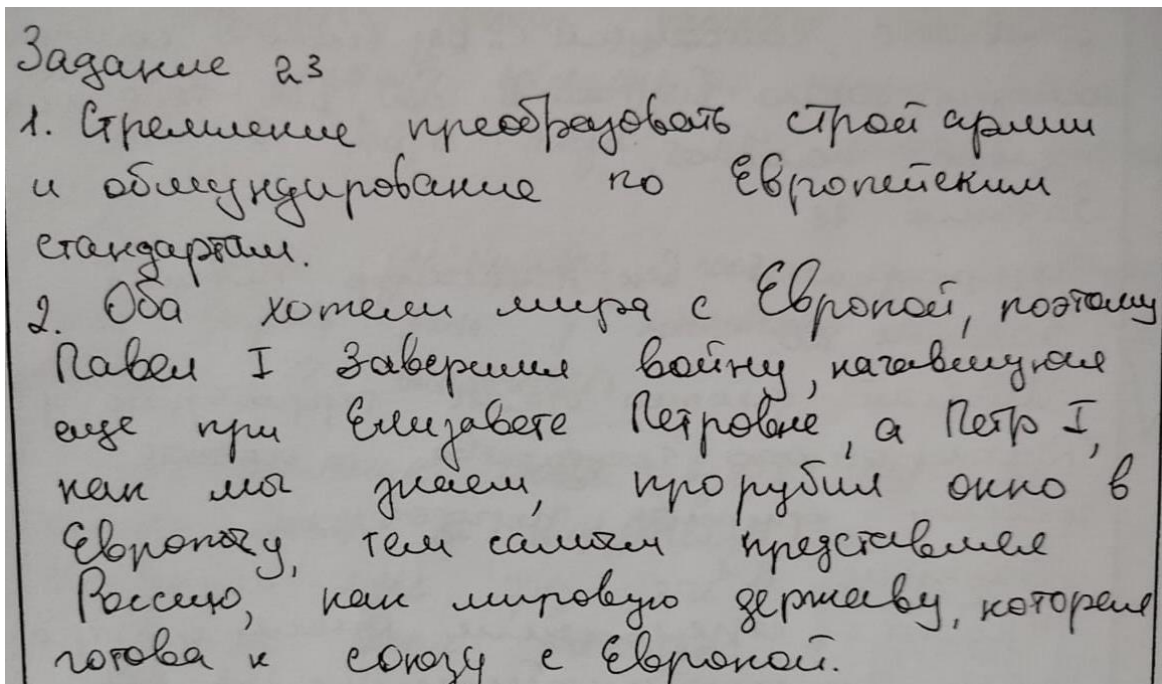 Задание 23
1. Стремление преобразовать строй армии
и обмундирование по Европейским
стандартам.
2. Оба хотели мира с Европой, поэтому
Павел I завершил войну, начавшуюся
еще при Елизавете Петровне, а Петр I,
как мы знаем, прорубил окно в
Европу, тем самым представляя
Россию, как мировую державу, которая
готова к союзу с Европой.